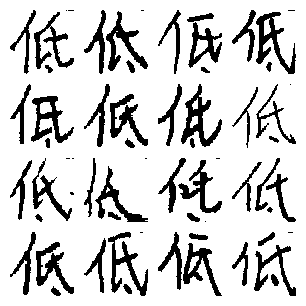 低低低低
低低低低
低低低低
低低低低